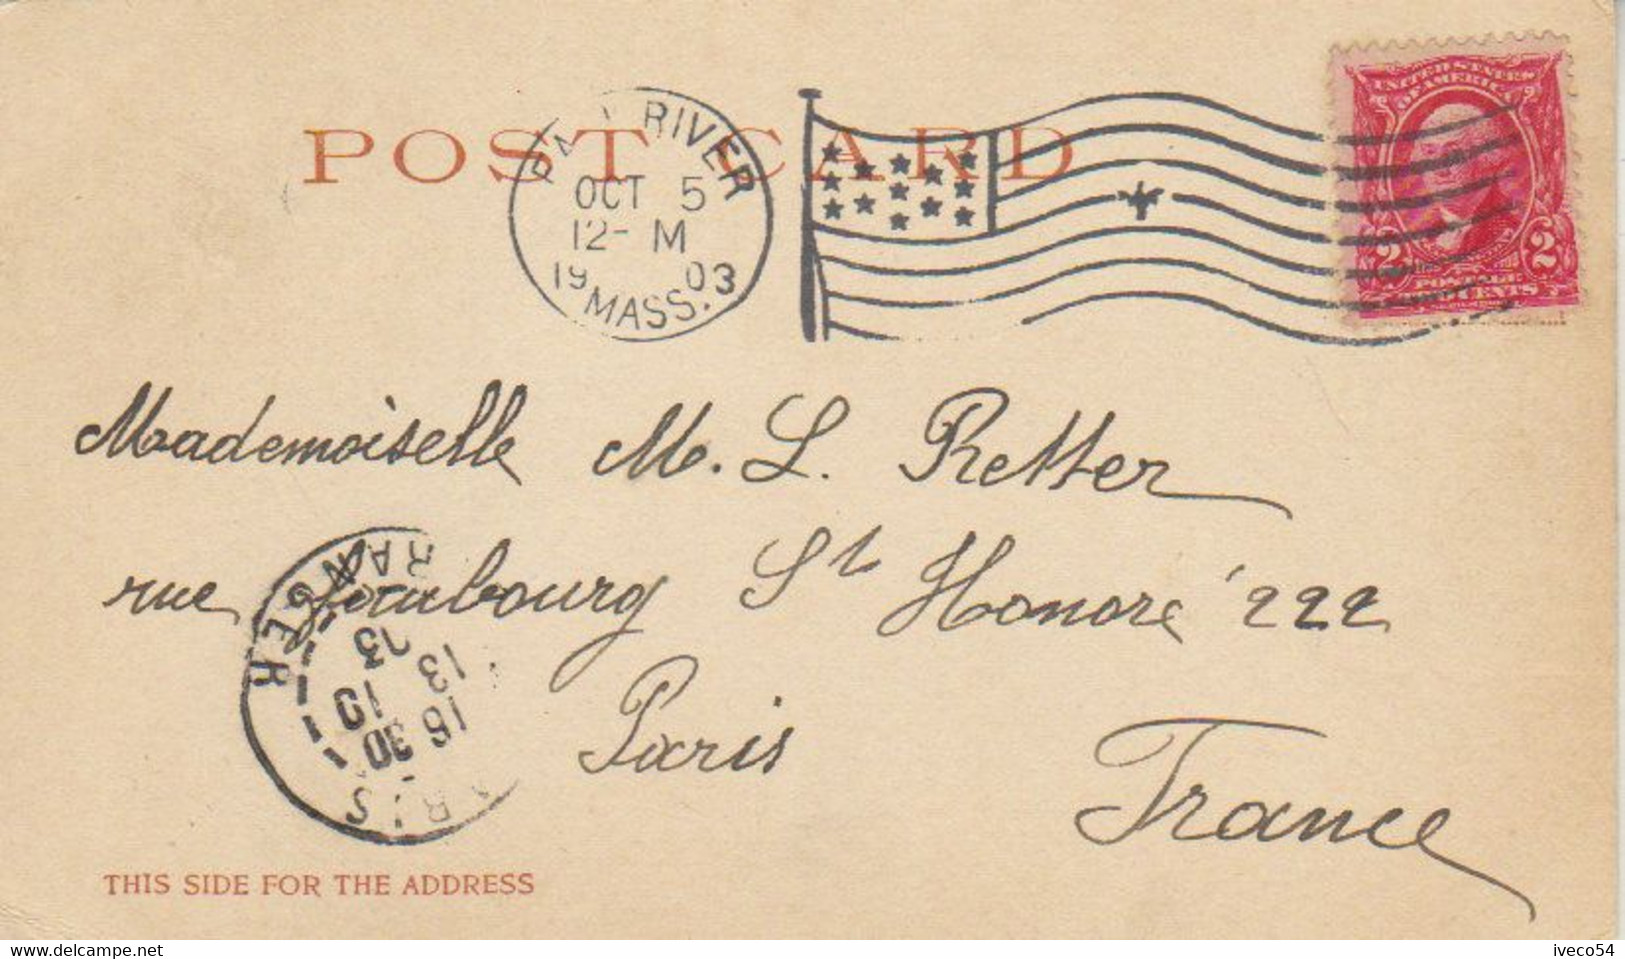 POST CARD
RIVER
OCT 5
12- M
19 03
MASS.
UNITED STATES
OF AMERICA
2 2
Mademoiselle M. L. Retter
rue Faubourg St Honoré 222
Paris
France
RANGER
03
13
10
16
30
THIS SIDE FOR THE ADDRESS
www.delcampe.net
iveco54